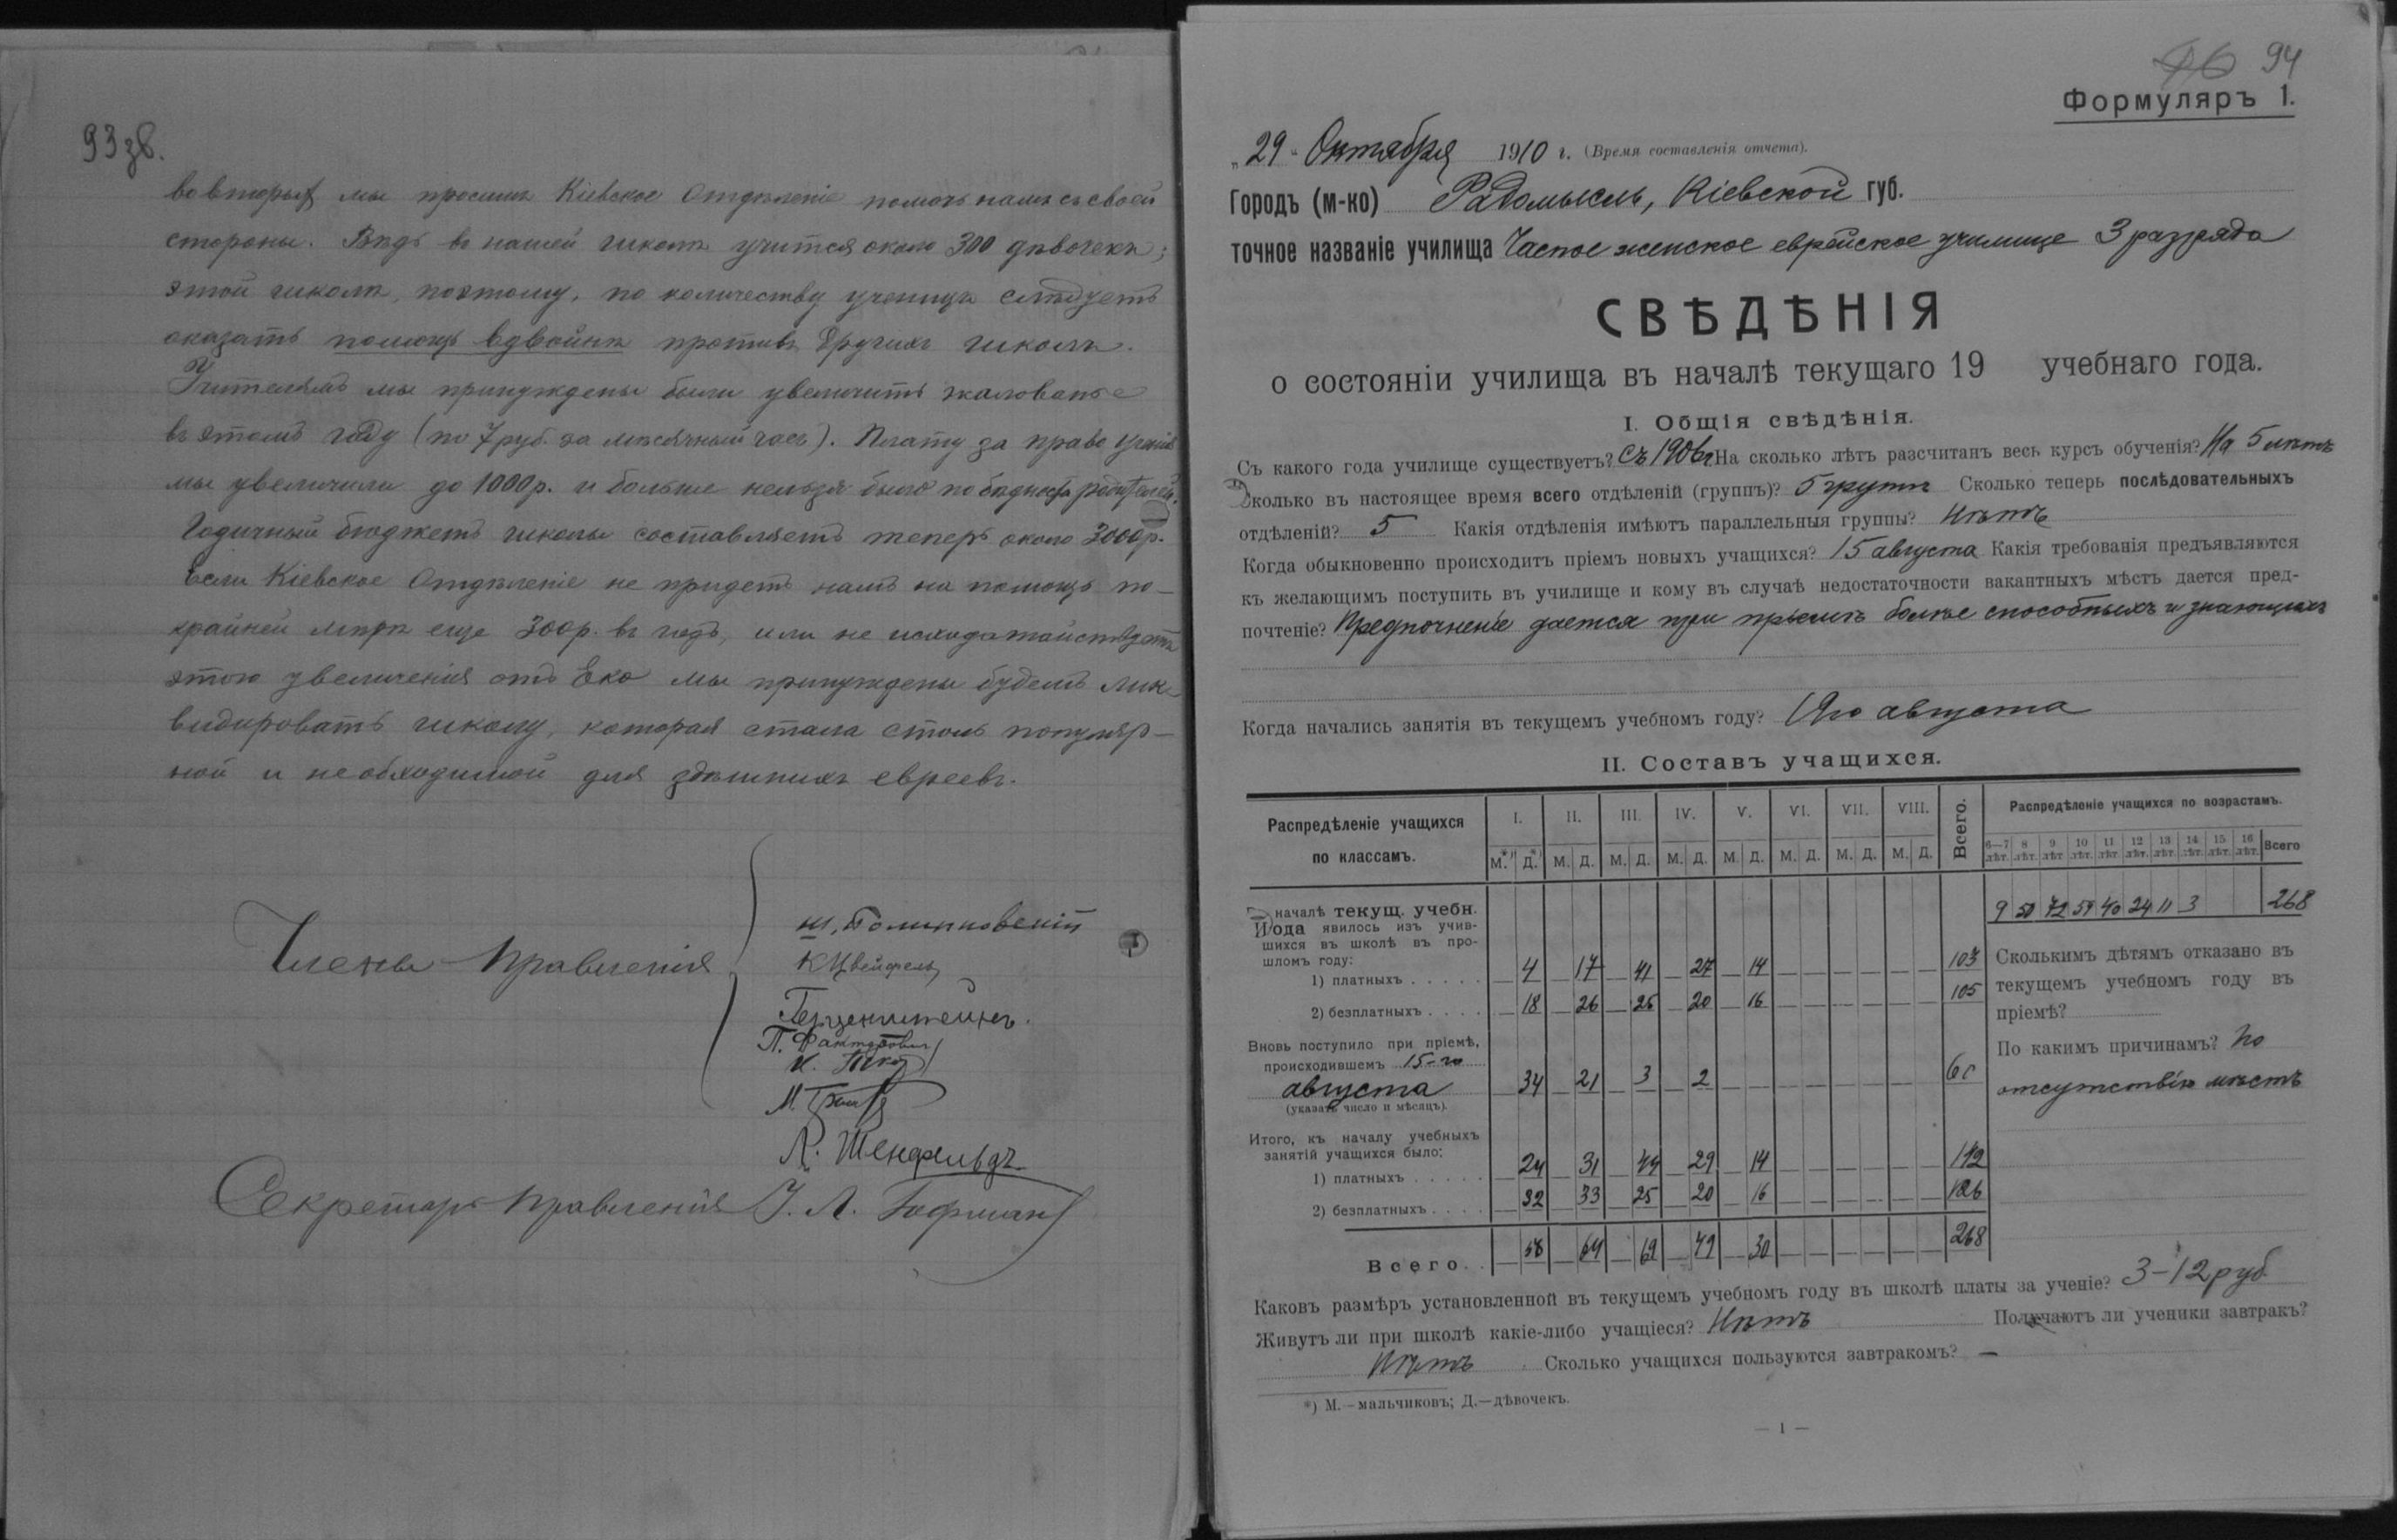 93 зв.
во вторых мы просимъ Кіевское Отдѣленіе помочь намъ съ своей
стороны. Вѣдь въ нашей школѣ учится около 300 дѣвочекъ;
этой школѣ, поэтому, по количеству ученицъ слѣдуетъ
оказать помощь вдвойнѣ противъ другихъ школъ.
Учителямъ мы принуждены были увеличить жалованье
въ этомъ году (по 7 руб. за мѣсячный часъ). Плату за право ученія
мы увеличили до 1000 р. и больше нельзя было по бѣдности родителей.
Годичный бюджетъ школы составляетъ теперь около 3000 р.
Если Кіевское Отдѣленіе не придетъ намъ на помощь по-
крайней мѣрѣ еще 300 р. въ годъ, или не исходатайствуетъ
этого увеличенія отъ Еко мы принуждены будемъ лик-
видировать школу, которая стала столь популяр-
ной и необходимой для здѣшнихъ евреевъ.
Члены Правленія
К Цвейфель
Герценштейнъ.
П. Факторовичъ
Л. Шенфельдъ
Секретарь Правленія І. Л. Гофманъ
94
Формуляръ 1.
„29“ Октября 1910 г. (Время составленія отчета).
Городъ (м-ко) Радомысль, Кіевской губ.
точное названіе училища Частное женское еврейское училище 3 разряда
СВѢДѢНІЯ
о состояніи училища въ началѣ текущаго 19 учебнаго года.
I. Общія свѣдѣнія.
Съ какого года училище существуетъ? Съ 1906 г. На сколько лѣтъ разсчитанъ весь курсъ обученія? На 5 лѣтъ
Сколько въ настоящее время всего отдѣленій (группъ)? 5 группъ Сколько теперь послѣдовательныхъ
отдѣленій? 5 Какія отдѣленія имѣютъ параллельныя группы? Нѣтъ
Когда обыкновенно происходитъ пріемъ новыхъ учащихся? 15 августа Какія требованія предъявляются
къ желающимъ поступить въ училище и кому въ случаѣ недостаточности вакантныхъ мѣстъ дается пред-
почтеніе? Предпочтеніе дается при пріемѣ болѣе способныхъ и знающихъ
Когда начались занятія въ текущемъ учебномъ году? августа
II. Составъ учащихся.
Распредѣленіе учащихся по классамъ. I. II. III. IV. V. VI. VII. VIII. Всего. Распредѣленіе учащихся по возрастамъ.
М.*) Д.*) М. Д. М. Д. М. Д. М. Д. М. Д. М. Д. М. Д. 6—7 лѣт. 8 лѣт. 9 лѣт. 10 лѣт. 11 лѣт. 12 лѣт. 13 лѣт. 14 лѣт. 15 лѣт. 16 лѣт. Всего
9 50 72 59 40 24 11 3 268
началѣ текущ. учебн.
года явилось изъ учив-
шихся въ школѣ въ про-
шломъ году:
1) платныхъ — 4 — 17 — 41 — 27 — 14 — — — — — — 103
2) безплатныхъ — 18 — 26 — 25 — 20 — 16 — — — — — — 105
Вновь поступило при пріемѣ,
происходившемъ 15-го
августа — 34 — 21 — 3 — 2 — — — — — — — — 60
(указать число и мѣсяцъ).
Итого, къ началу учебныхъ
занятій учащихся было:
1) платныхъ — 24 — 31 — 44 — 29 — 14 — — — — — — 142
2) безплатныхъ — 32 — 33 — 25 — 20 — 16 — — — — — — 126
Всего — 56 — 64 — 69 — 49 — 30 — — — — — — 268
Сколькимъ дѣтямъ отказано въ
текущемъ учебномъ году въ
пріемѣ?
По какимъ причинамъ? По
отсутствію мѣстъ
Каковъ размѣръ установленной въ текущемъ учебномъ году въ школѣ платы за ученіе? 3–12 руб
Живутъ ли при школѣ какіе-либо учащіеся? Нѣтъ Получаютъ ли ученики завтракъ?
Нѣтъ Сколько учащихся пользуются завтракомъ? —
*) М.—мальчиковъ; Д.—дѣвочекъ.
— 1 —